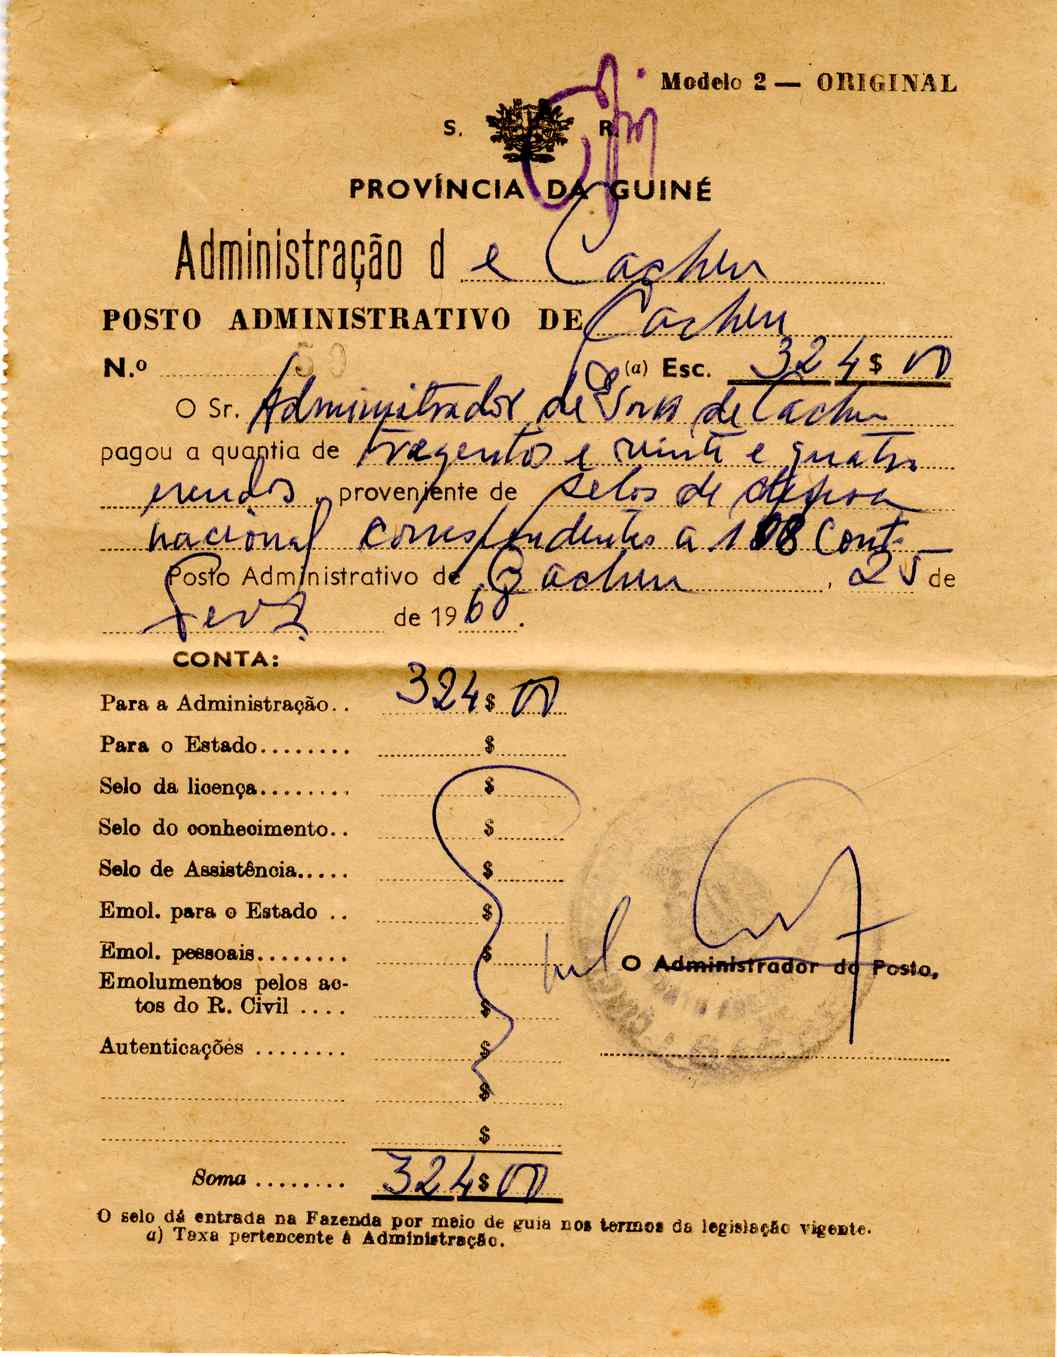 Modelo 2 — ORIGINAL
S. R.
PROVÍNCIA DA GUINÉ
Administração d e Cacheu
POSTO ADMINISTRATIVO DE Cacheu
N.º 59 (a) Esc. 324$00
O Sr. Administrador de de Cacheu
pagou a quantia de trezentos e vinte e quatro
escudos, proveniente de selos de defesa
nacional correspondentes a 108 Cont.
Posto Administrativo de Cacheu, 25 de
Fevº de 1960.
CONTA:
Para a Administração.. 324$00
Para o Estado........ $
Selo da licença........ $
Selo do conhecimento.. $
Selo de Assistência..... $
Emol. para o Estado .. $
Emol. pessoais........ $
O Administrador do Posto,
Emolumentos pelos ac-
tos do R. Civil .... $
Autenticações ........ $
$
$
Soma ........ 324$00
O selo dá entrada na Fazenda por meio de guia nos termos da legislação vigente.
a) Taxa pertencente à Administração.